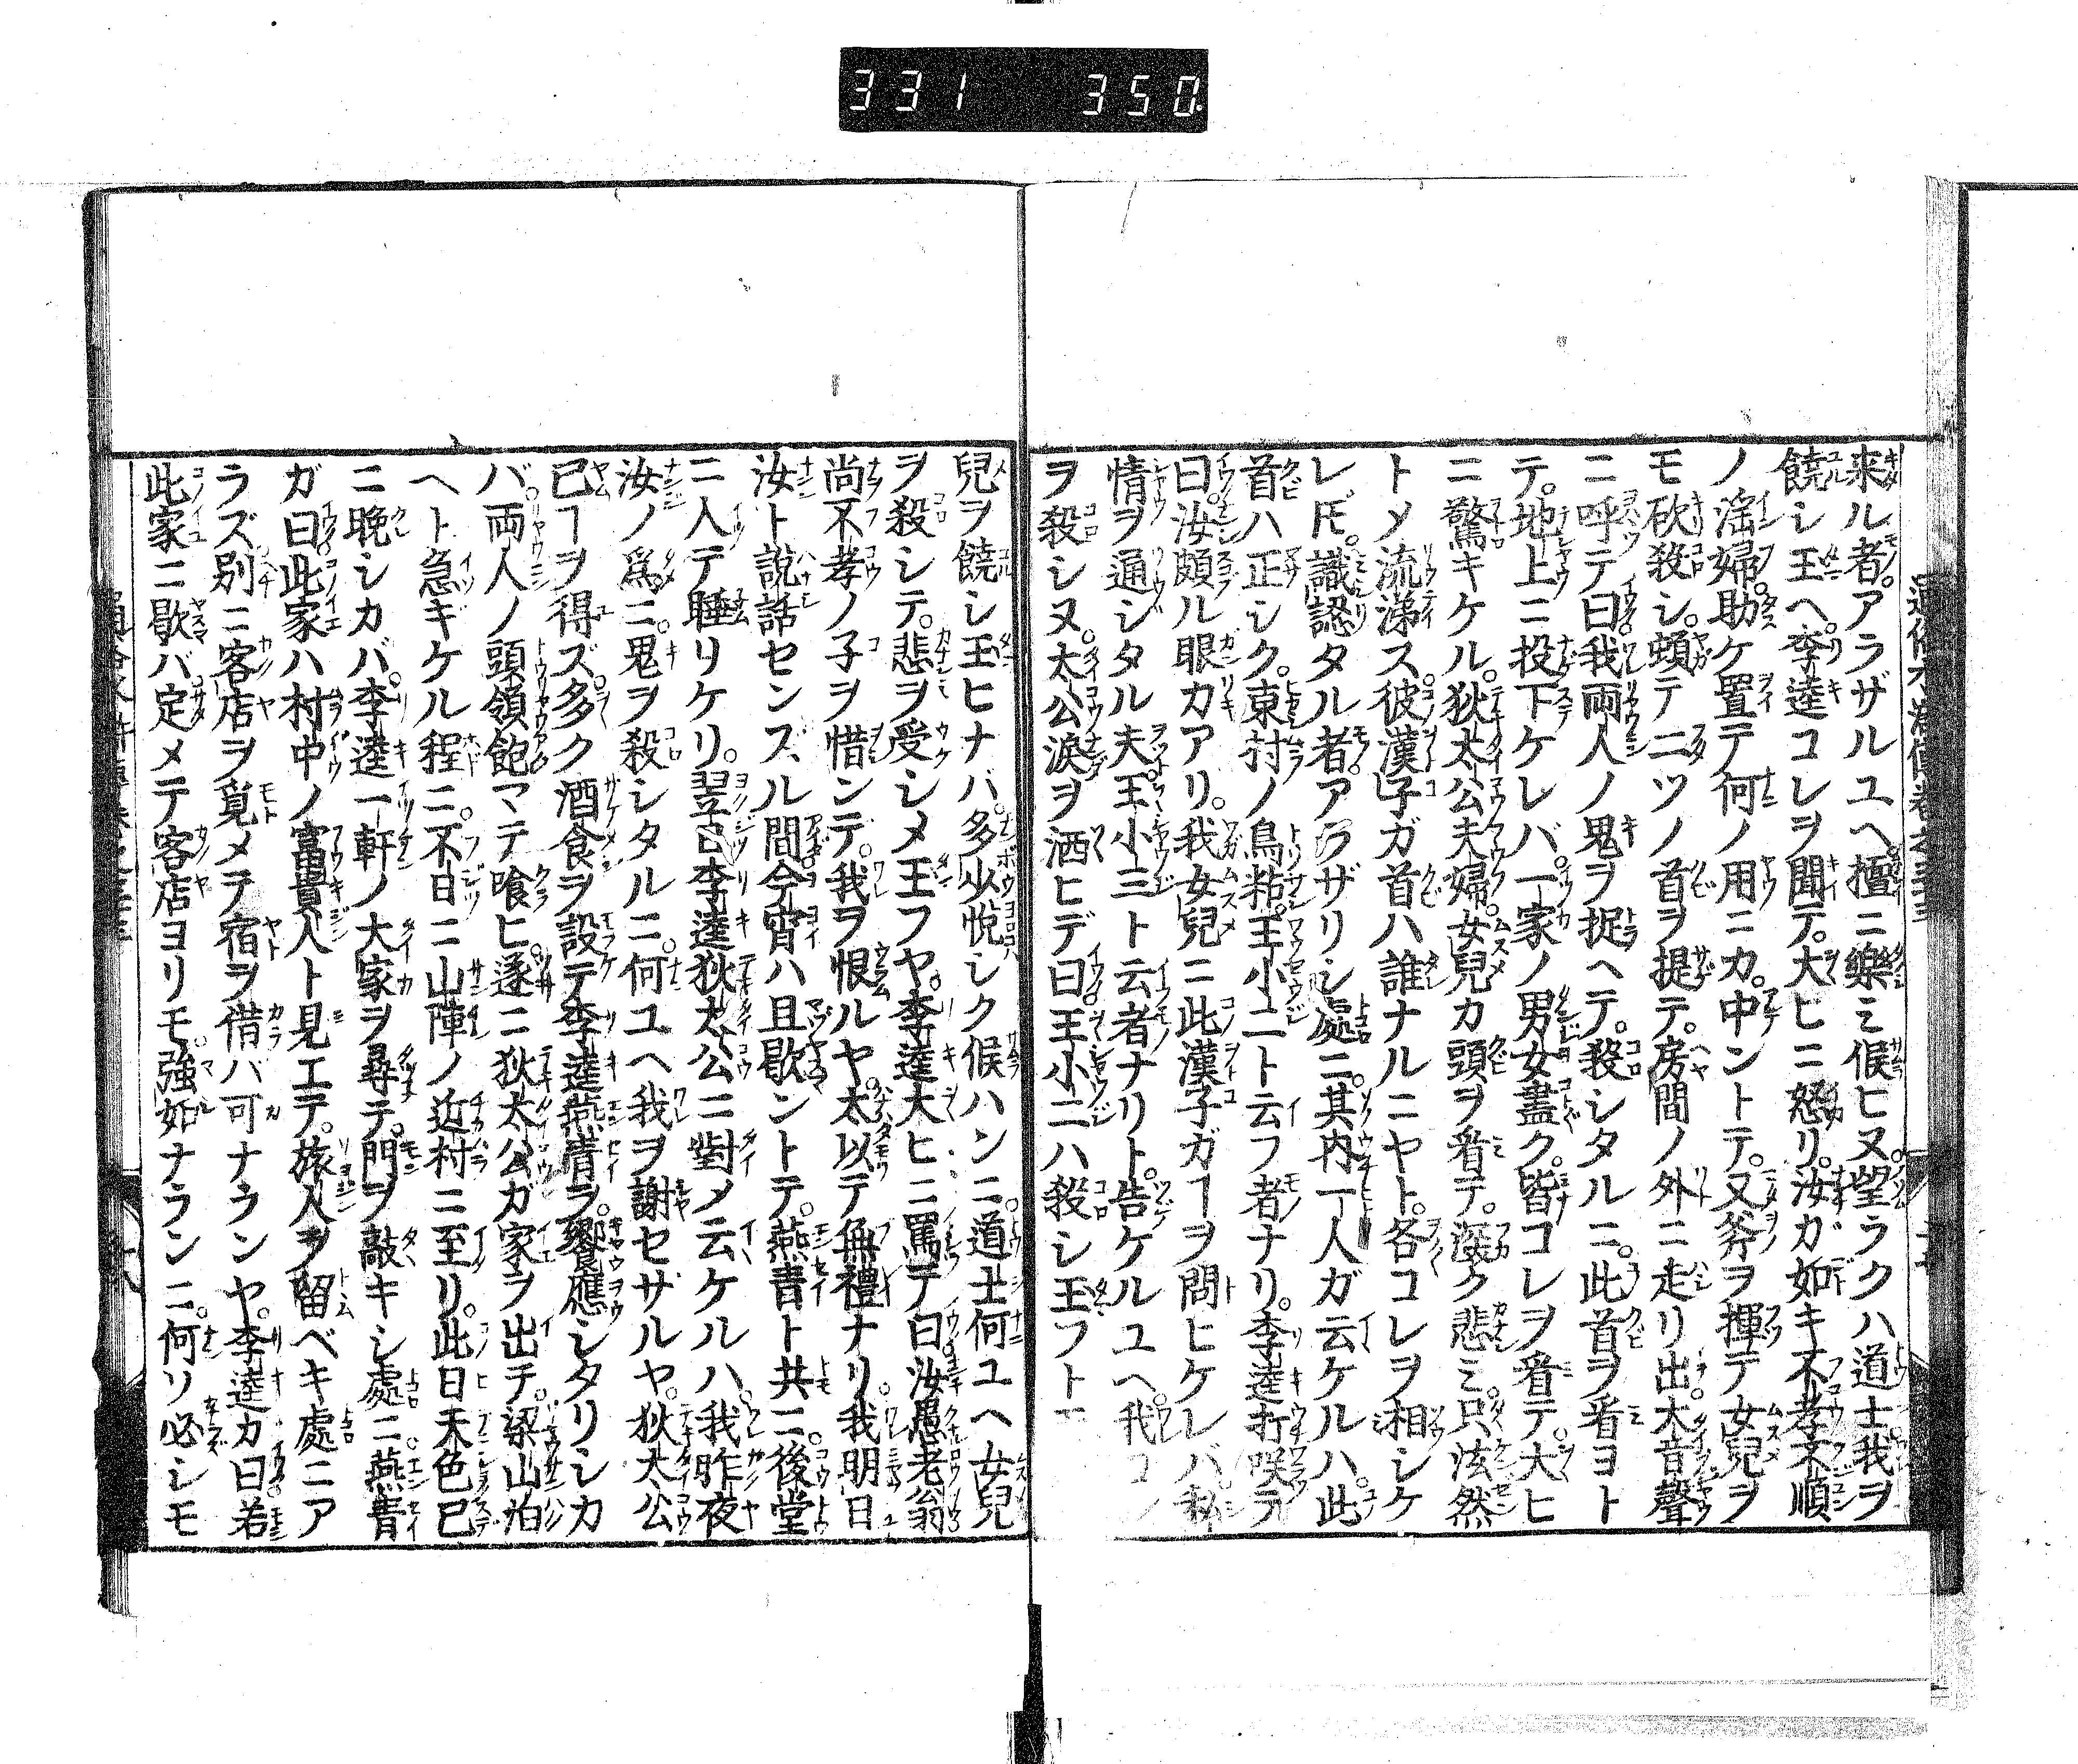 331 350
来ル者。アラザルユヘ。擅ニ樂ミ候ヒヌ。望ラクハ道士我ヲ
饒シ玉ヘ。李逵コレヲ聞テ。大ヒニ怒リ。汝ガ如キ不孝不順
ノ滛婦。助ケ置テ何ノ用ニカ。中ントテ。又斧ヲ揮テ女兒ヲ
モ砍殺シ。頓テ二ツノ首ヲ提テ。房間ノ外ニ走リ出。大音聲
ニ呼テ曰。我両人ノ鬼ヲ捉ヘテ。殺シタルニ。此首ヲ看ヨト
テ。地上ニ投下ケレバ。一家ノ男女盡ク。皆コレヲ看テ。大ヒ
ニ驚キケル。狄太公夫婦。女兒カ頭ヲ看テ。深ク悲ミ。只泫然
トメ流涕ス。彼漢子ガ首ハ誰ナルニヤト。各コレヲ相シケ
レドモ。識認タル者。アラザリシ處ニ。其内一人ガ云ケルハ。此
首ハ正シク。東村ノ鳥粘。王小二ト云フ者ナリ。李逵打咲テ
曰。汝頗ル眼カアリ。我女兒ニ此漢子ガヿヲ問ヒケレバ私
情ヲ通シタル夫。王小三ト云者ナリト。告ケルユヘ。我コレ
ヲ殺シヌ。太公涙ヲ洒ヒデ曰。王小二ハ殺シ玉フト
兒ヲ饒シ玉ヒナバ。多少悅シク候ハンニ。道士何ユヘ女兒
ヲ殺シテ。悲ヲ受シメ玉フヤ。李逵大ヒニ罵テ曰。汝愚老翁
尚不孝ノ子ヲ惜ンデ。我ヲ恨ルヤ。太以テ無禮ナリ。我明日
汝ト說話センズル間。今宵ハ且歇ントテ。燕青ト共ニ。後堂
ニ入テ睡リケリ。翌日李逵狄太公ニ對メ云ケルハ。我昨夜
汝ノ爲ニ。鬼ヲ殺シタルニ。何ユヘ我ヲ謝セザルヤ。狄太公
已ヿヲ得ズ。多ク酒食ヲ設テ。李逵燕青ヲ。饗應シタリシカ
バ。両人ノ頭領飽マテ喰ヒ。遂ニ狄太公カ家ヲ出テ。梁山泊
ヘト急ギケル程ニ。不日ニ山陣ノ近村ニ至リ。此日天色已
ニ晩シカバ。李逵一軒ノ大家ヲ尋テ。門ヲ敲キシ處ニ。燕青
ガ曰。此家ハ村中ノ富貴人ト見エテ。旅人ヲ留ベキ處ニア
ラズ別ニ客店ヲ覓メテ宿ヲ借バ可ナラン。ヤ。李逵カ曰若
此家ニ歇バ定メテ客店ヨリモ。強如ナランニ。何ソ必シモ